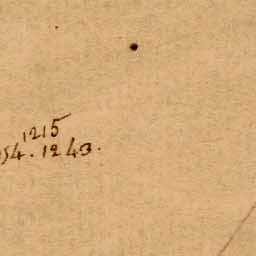 1215
154. 1243.